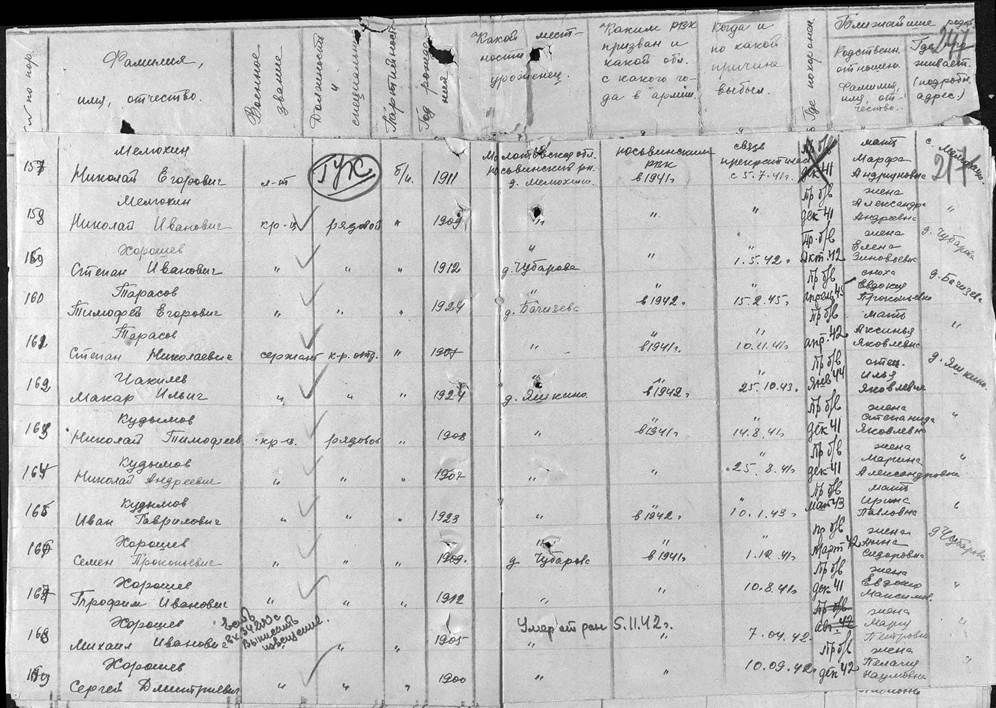 № по пор.
Фамилия,
имя, отчество.
Военное
звание
Должность
и
специальность
Партийность
Год рожде
ния
Какой мест-
ности
уроженец.
Каким РВК
призван и
какой обл.
с какого го-
да в армии.
Когда и
по какой
причине
выбыл.
Где похоронен.
Ближайшие родст
Родствен.
отношен.
Фамилия,
имя, от-
чество.
Где
живает.
(подробн.
адрес)
247
157
Мемохин
Николай Егорович
л-т
ГУК
б/п
1911
Молотовская обл.
Юсьвинский рн.
д. Мемохина
Юсьвинским
РВК
в 1941г.
связь
прекратил
с 5.7.41г.
Пр б/в
дек 41
мать
Марфа
217
158
Мемохин
Николай Иванович
кр-ц
рядовой
"
1909
"
"
"
Пр б/в
дек 41
жена
Александра
Андреевна
"
159
Хорошев
Степан Иванович
"
"
"
1912
"
д. Чубарова
"
"
1.5.42г.
Пр. б/в
жена
Елена
Зиновьевна
д. Чубарова
160
Тарасов
Тимофей Егорович
"
"
"
1924
"
в 1942г.
15.2.45г.
Пр б/в
апрель 45
Евдокия
Прокопьевна
161
Тарасов
Степан Николаевич
сержант
к-р. отд.
"
"
"
в 1941г.
10.11.41г
Пр б/в
апр. 42
мать
Аксинья
Яковлевна
"
162
Макар Ильич
"
"
"
1924
"
д. Яшкина
"
в 1942г.
"
25.10.43г.
Пр б/в
Янв 44
отец
Илья
Яковлевич
д. Яшкина
163
Кудымов
Николай Тимофеев
кр-ц.
рядовой
"
1908
"
"
в 1941г
"
14.8.41г
Пр б/в
дек 41
жена
Степанида
Яковлевна
"
164
Кудымов
Николай Андреевич
"
"
"
1907
"
"
"
25.8.41г
Пр б/в
дек 41
жена
Марина
Александровна
"
165
Кудымов
Иван Гаврилович
"
"
"
1923
"
"
в 1942г.
"
10.1.43г
Пр б/в
март 43
мать
Ирина
Павловна
"
166
Хорошев
Семен Прокопьевич
"
"
"
1909.
"
д. Чубарова
"
в 1941г
"
1.12.41г
Пр б/в
Март 42
жена
Анна
Сидоровна
д Чубарова
167
Хорошев
Трофим Иванович
"
"
"
1912
"
"
10.8.41г
Пр б/в
дек 41
жена
Евдокия
Максимов.
"
168
Хорошев
Михаил Иванович
Выписать
извещение.
"
1905
Умер от ран 5.11.42г.
"
7.04.42
Пр б/в
авг. 42
жена
Мария
Петровна
"
169
Хорошев
Сергей Дмитриевич
"
"
"
1900
"
"
10.09.42г
Пр б/в
дек 42
жена
Пелагия
Наумовна
"